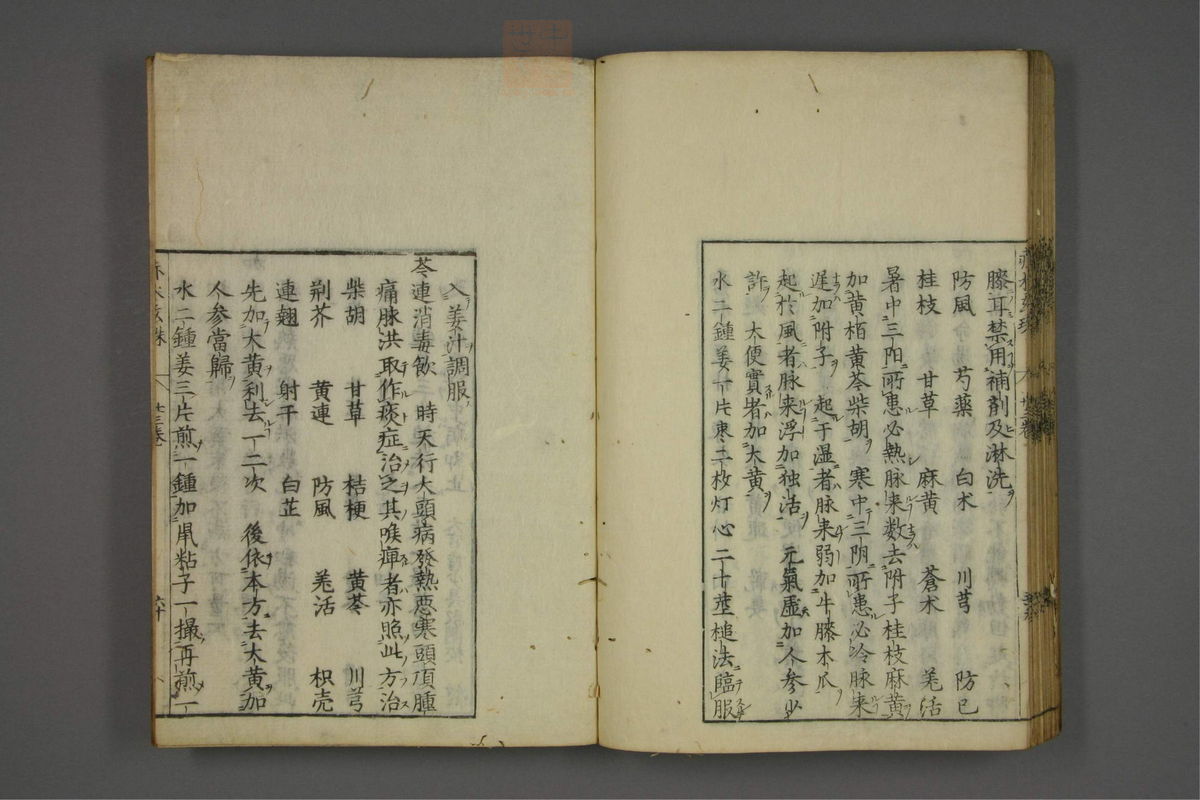 膝耳禁用補劑及淋洗
防風 芍薬 白朮 川芎 防已
桂枝 甘草 麻黄 蒼朮 羌活
暑中三阳所患必熱脉来数去附子桂枝麻黄
加黄栢黄芩柴胡 寒中三阴所患必冷脉来
遅加附子 起于湿者脉来弱加牛膝木瓜
起於風者脉来浮加独活 元氣虛加人参少
許 大便實者加大黄
水二鍾姜一片枣二枚灯心二十莖槌法臨服
入姜汁調服
芩連消毒飲 時天行大頭病發熱惡寒頭項腫
痛脉洪取作痰症治之其喉痺者亦照此方治
柴胡 甘草 桔梗 黄芩 川芎
荆芥 黄連 防風 羌活 枳壳
連翹 射干 白芷
先加大黄利去一二次 後依本方去大黄加
人参當歸
水二鍾姜三片煎一鍾加鼡粘子一撮再煎一
赤水玄珠 廿三巻 六十